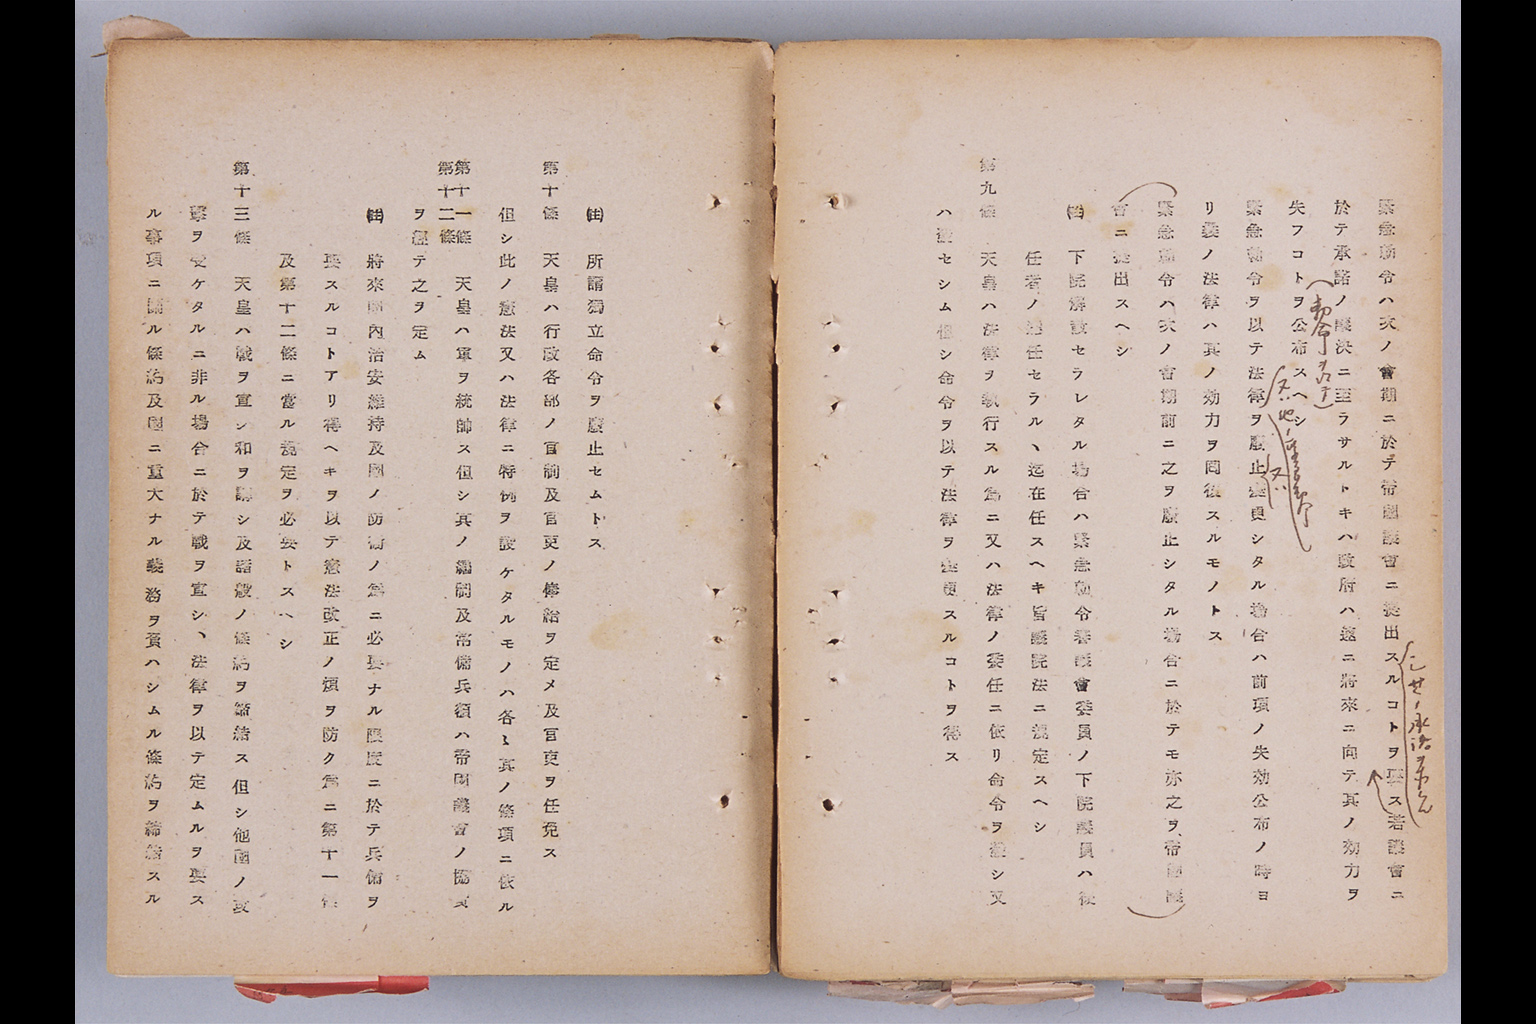 緊急勅令ハ次ノ會期ニ於テ帝國議會ニ提出スルコトヲ要ス若議會ニ
於テ承諾ノ議決ニ至ラサルトキハ政府ハ更ニ將來ニ向テ其ノ効力ヲ
失フコトヲ公布スヘシ
緊急勅令ヲ以テ法律ヲ廢止變更シタル場合ハ前項ノ失効公布ノ時ヨ
リ舊ノ法律ハ其ノ効力ヲ囘復スルモノトス
緊急勅令ハ次ノ會期前ニ之ヲ廢止シタル場合ニ於テモ亦之ヲ帝國議
會ニ提出スヘシ
㊟ 下院解散セラレタル場合ハ緊急勅令審議會委員ノ下院議員ハ後
任者ノ選任セラルヽ迄在任スヘキ旨議院法ニ規定スヘシ
第九條 天皇ハ法律ヲ執行スル爲ニ又ハ法律ノ委任ニ依リ命令ヲ發シ又
ハ發セシム但シ命令ヲ以テ法律ヲ變更スルコトヲ得ス
㊟ 所謂獨立命令ヲ廢止セムトス
第十條 天皇ハ行政各部ノ官制及官吏ノ俸給ヲ定メ及官吏ヲ任免ス
但シ此ノ憲法又ハ法律ニ特例ヲ設ケタルモノハ各〻其ノ條項ニ依ル
第十一條
第十二條 天皇ハ軍ヲ統帥ス但シ其ノ編制及常備兵額ハ帝國議會ノ協賛
ヲ經テ之ヲ定ム
㊟ 將來國內治安維持及國ノ防衛ノ爲ニ必要ナル限度ニ於テ兵備ヲ
要スルコトアリ得ヘキヲ以テ憲法改正ノ煩ヲ防ク爲ニ第十一條
及第十二條ニ當ル規定ヲ必要トスヘシ
第十三條 天皇ハ戰ヲ宣シ和ヲ講シ及諸般ノ條約ヲ締結ス但シ他國ノ攻
擊ヲ受ケタルニ非ル場合ニ於テ戰ヲ宣シ、法律ヲ以テ定ムルヲ要ス
ル事項ニ關ル條約及國ニ重大ナル義務ヲ負ハシムル條約ヲ締結スル